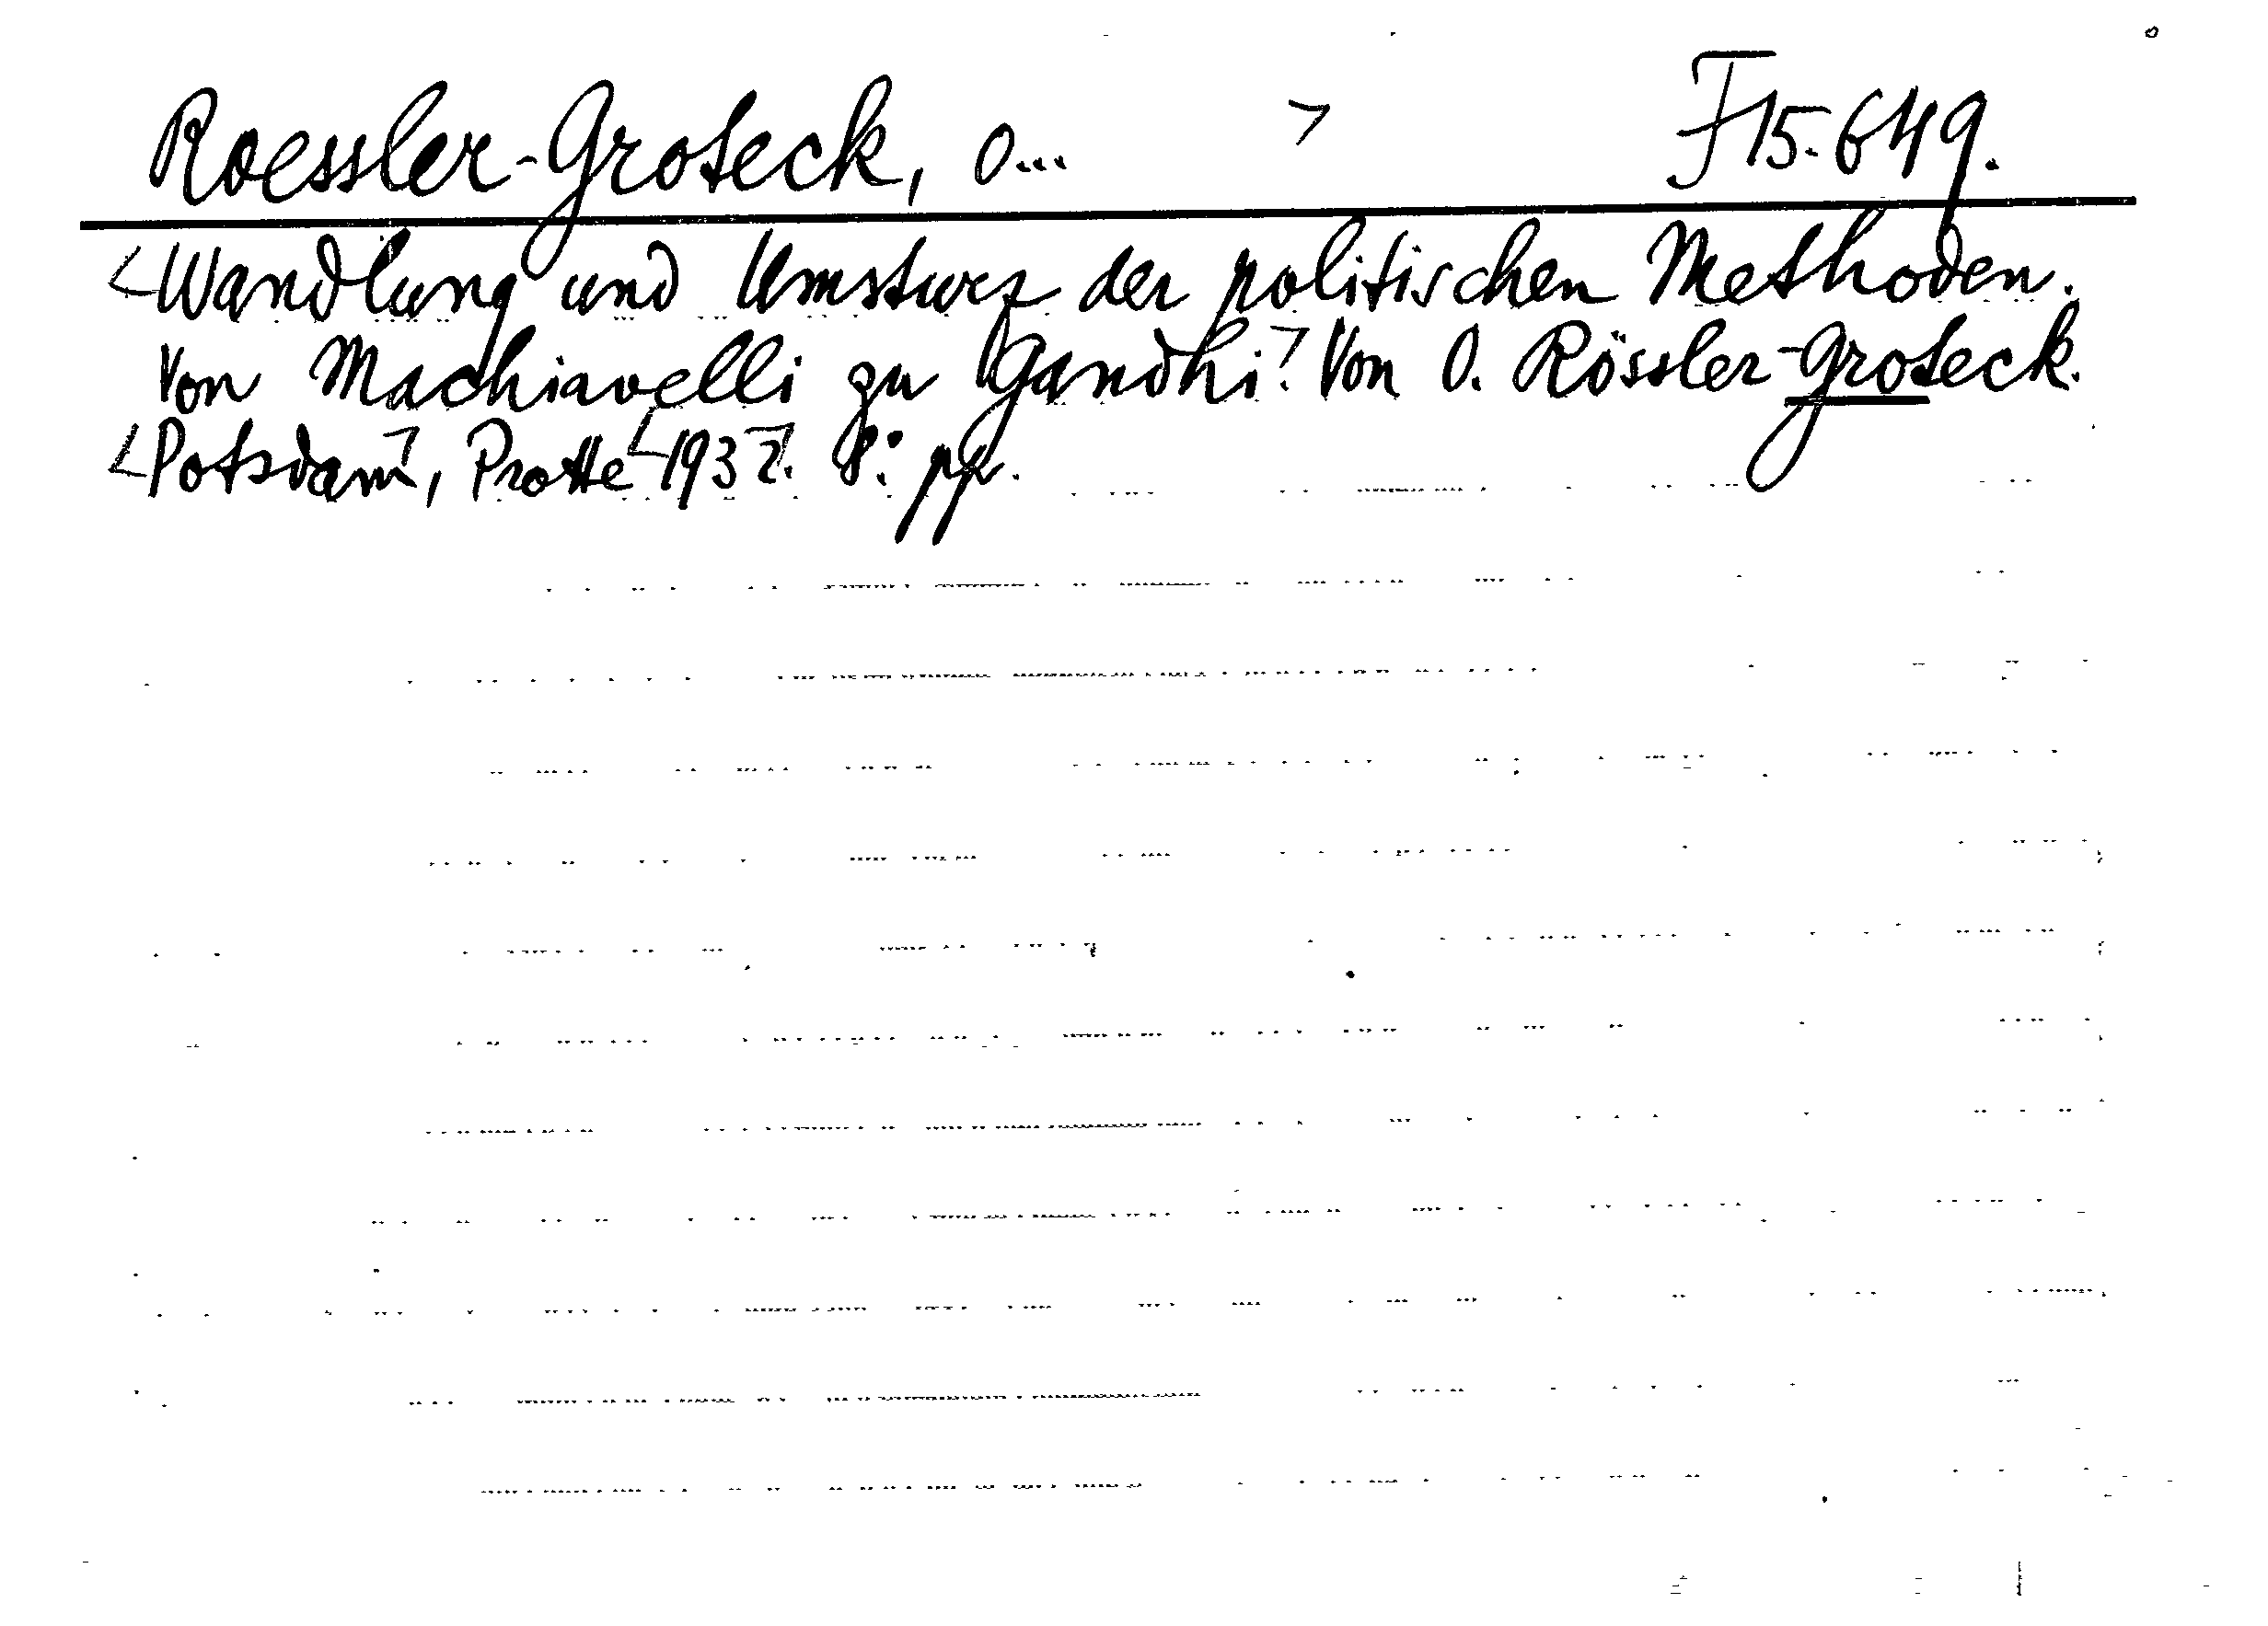 Roessler-Groteck, O... F15.649.
Wandlung und Umsturz der politischen Methoden.
Von Machiavelli zu Gandhi. Von O. Rössler-Groteck.
Potsdam, Protte 1932. 8: pp.